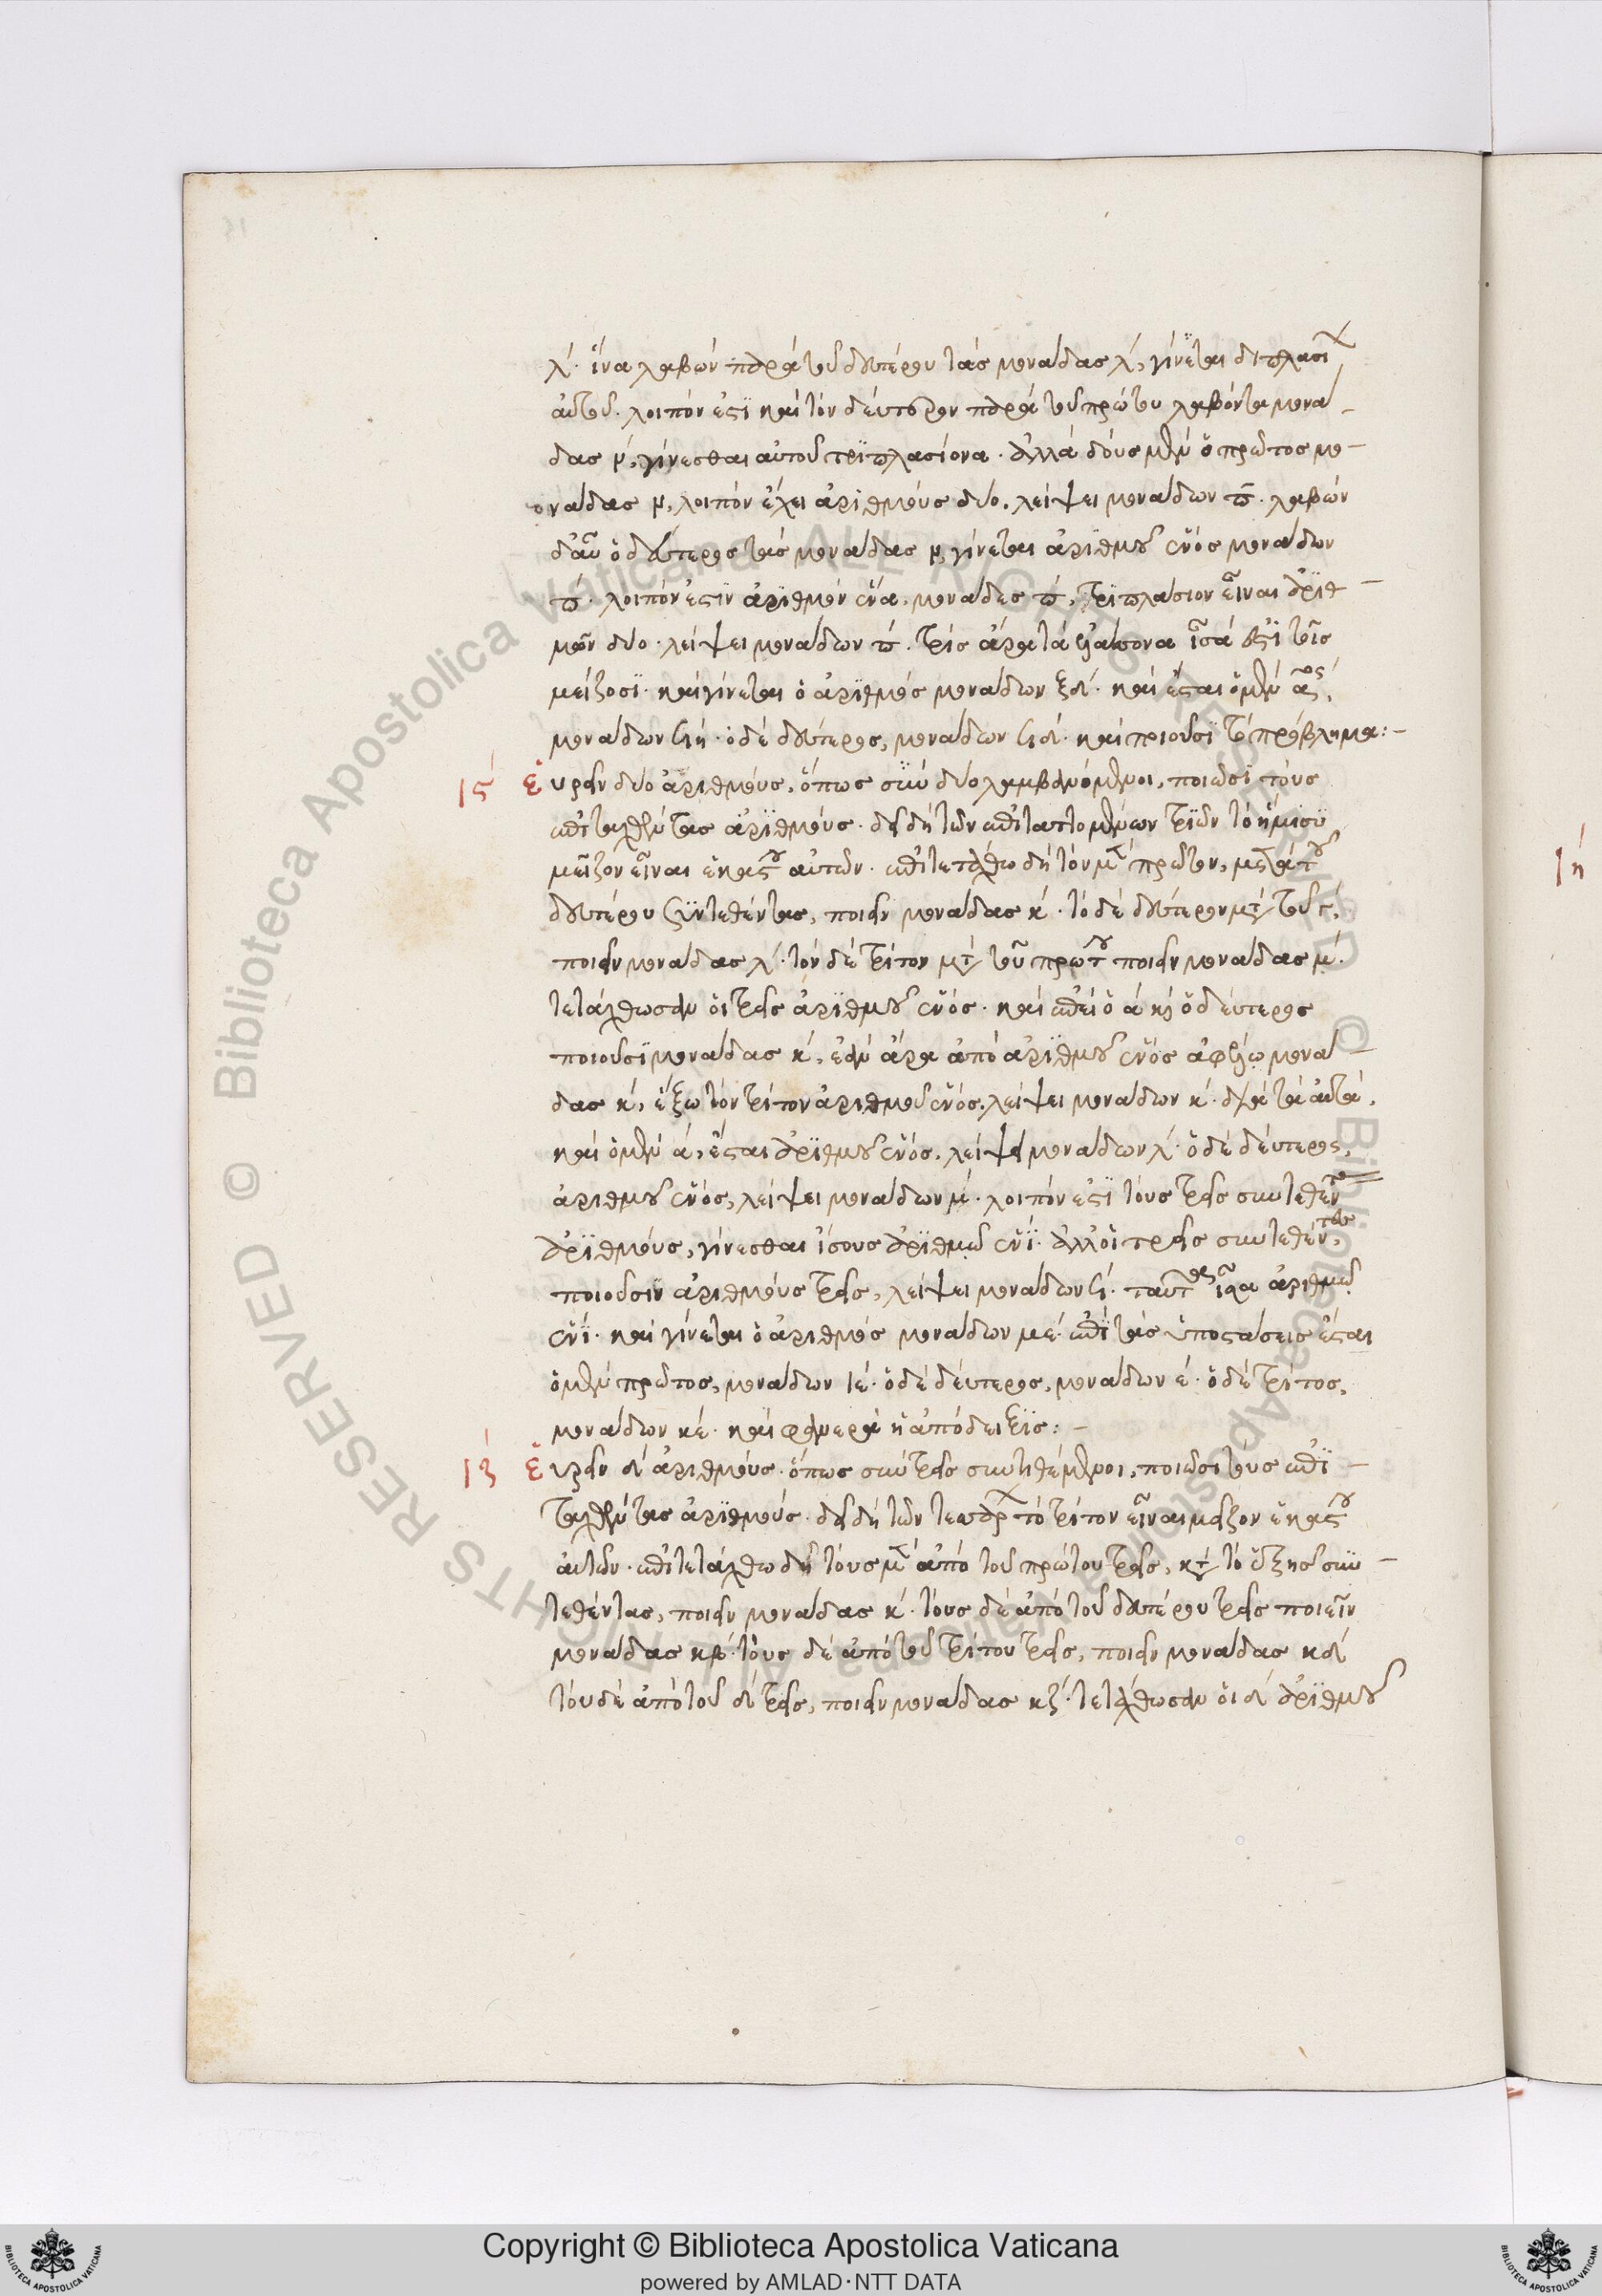 λ΄. ἵνα λαβὼν παρὰ τοῦ δευτέρου τὰς μονάδας λ΄, γίνεται διπλασίχ
αὐτοῦ. λοιπόν ἐστὶ καὶ τὸν δεύτερον παρὰ τοῦ πρώτου λαβόντα μονά-
δας ν΄, γίνεσθαι αὐτοῦ τριπλασίονα. ἀλλὰ δοὺς μὲν ὁ πρῶτος μο-
νάδας ν, λοιπὸν ἔχει ἀριθμοὺς δύο, λείψει μονάδων π. λαβὼν
δὲ ὁ δεύτερος τὰς μονάδας ν, γίνεται ἀριθμοῦ ἑνὸς μονάδων
π΄. λοιπόν ἐστιν ἀριθμὸν ἕνα, μονάδες π΄, τριπλάσιον εἶναι ἀριθ-
μῶν δύο λείψει μονάδων π΄. τρὶς ἄρα τὰ ἐλάσσονα ἴσα ἐστὶ τοῖς
μείζοσι. καὶ γίνεται ὁ ἀριθμὸς μονάδων ξδ΄. καὶ ἔσται ὁ μὲν αος,
μονάδων ϟη. ὁ δὲ δεύτερος, μονάδων ϟδ΄. καὶ ποιοῦσι τὸ πρόβλημα:-
ιϛ΄ εὑρεῖν δύο ἀριθμοὺς, ὅπως σὺν δύο λαμβανόμενοι, ποιῶσι τοὺς
ἐπιταχθέντας ἀριθμούς. δεῖ δὴ τῶν ἐπιταττομένων τριῶν τὸ ἥμισυ
μεῖζον εἶναι ἑκάστου αὐτῶν. ἐπιτετάχθω δὴ τὸν μὲν πρῶτον, μετὰ τοῦ
δευτέρου συντεθέντας, ποιεῖν μονάδας κ΄. τὸ δὲ δεύτερον μετὰ τοῦ γ,
ποιεῖν μονάδας λ΄. τὸν δὲ τρίτον μετὰ τοῦ πρώτου ποιεῖν μονάδας μ΄.
τετάχθωσαν οἱ τρεῖς ἀριθμοῦ ἑνός. καὶ ἐπεὶ ὁ α΄ καὶ ὁ δεύτερος
ποιοῦσι μονάδας κ΄, ἐὰν ἄρα ἀπὸ ἀριθμοῦ ἑνὸς ἀφέλω μονά-
δας κ΄, ἕξω τὸν τρίτον ἀριθμοῦ ἑνός, λείψει μονάδων κ΄. διὰ τὰ αὐτὰ,
καὶ ὁ μὲν α΄, ἔσται ἀριθμοῦ ἑνός, λείψει μονάδων λ΄. ὁ δὲ δεύτερος,
ἀριθμοῦ ἑνός, λείψει μονάδων μ΄. λοιπόν ἐστὶ τοὺς τρεῖς συντεθέν
ἀριθμοὺς, γίνεσθαι ἴσους ἀριθμῷ ἑνί. ἀλλ' οἱ τρεῖς συντεθέντες,
ποιοῦσιν ἀριθμοὺς τρεῖς, λείψει μονάδων ϟ΄. ταῦτα ἴσα ἀριθμῷ
ἑνί. καὶ γίνεται ὁ ἀριθμὸς μονάδων με΄. ἐπὶ τὰς ὑποστάσεις ἔσται
ὁ μὲν πρῶτος, μονάδων ιε΄. ὁ δὲ δεύτερος, μονάδων ε΄. ὁ δὲ τρίτος,
μονάδων κε΄. καὶ φανερὰ ἡ ἀπόδειξις:-
ιζ εὑρεῖν δ΄ ἀριθμούς. ὅπως σὺν τρεῖς συντιθέμενοι, ποιῶσι τοὺς ἐπι-
ταχθέντας ἀριθμούς. δεῖ δὴ τῶν τεσσάρ τὸ τρίτον εἶναι μεῖζον ἑκάστου
αὐτῶν. ἐπιτετάχθω δὴ τοὺς μὲν ἀπὸ τοῦ πρώτου τρεῖς, κατὰ τὸ ἑξῆς συν-
τεθέντας, ποιεῖν μονάδας κ΄. τοὺς δὲ ἀπὸ τοῦ δευτέρου τρεῖς ποιεῖν
μονάδας κβ΄. τοὺς δὲ ἀπὸ τοῦ τρίτου τρεῖς, ποιεῖν μονάδας κδ΄
τοὺ δὲ ἀπὸ τοῦ δ΄ τρεῖς, ποιεῖν μονάδας κζ΄. τετάχθωσαν οἱ δ΄ ἀριθμοῦ
ιη
Copyright © Biblioteca Apostolica Vaticana
powered by AMLAD·NTT DATA